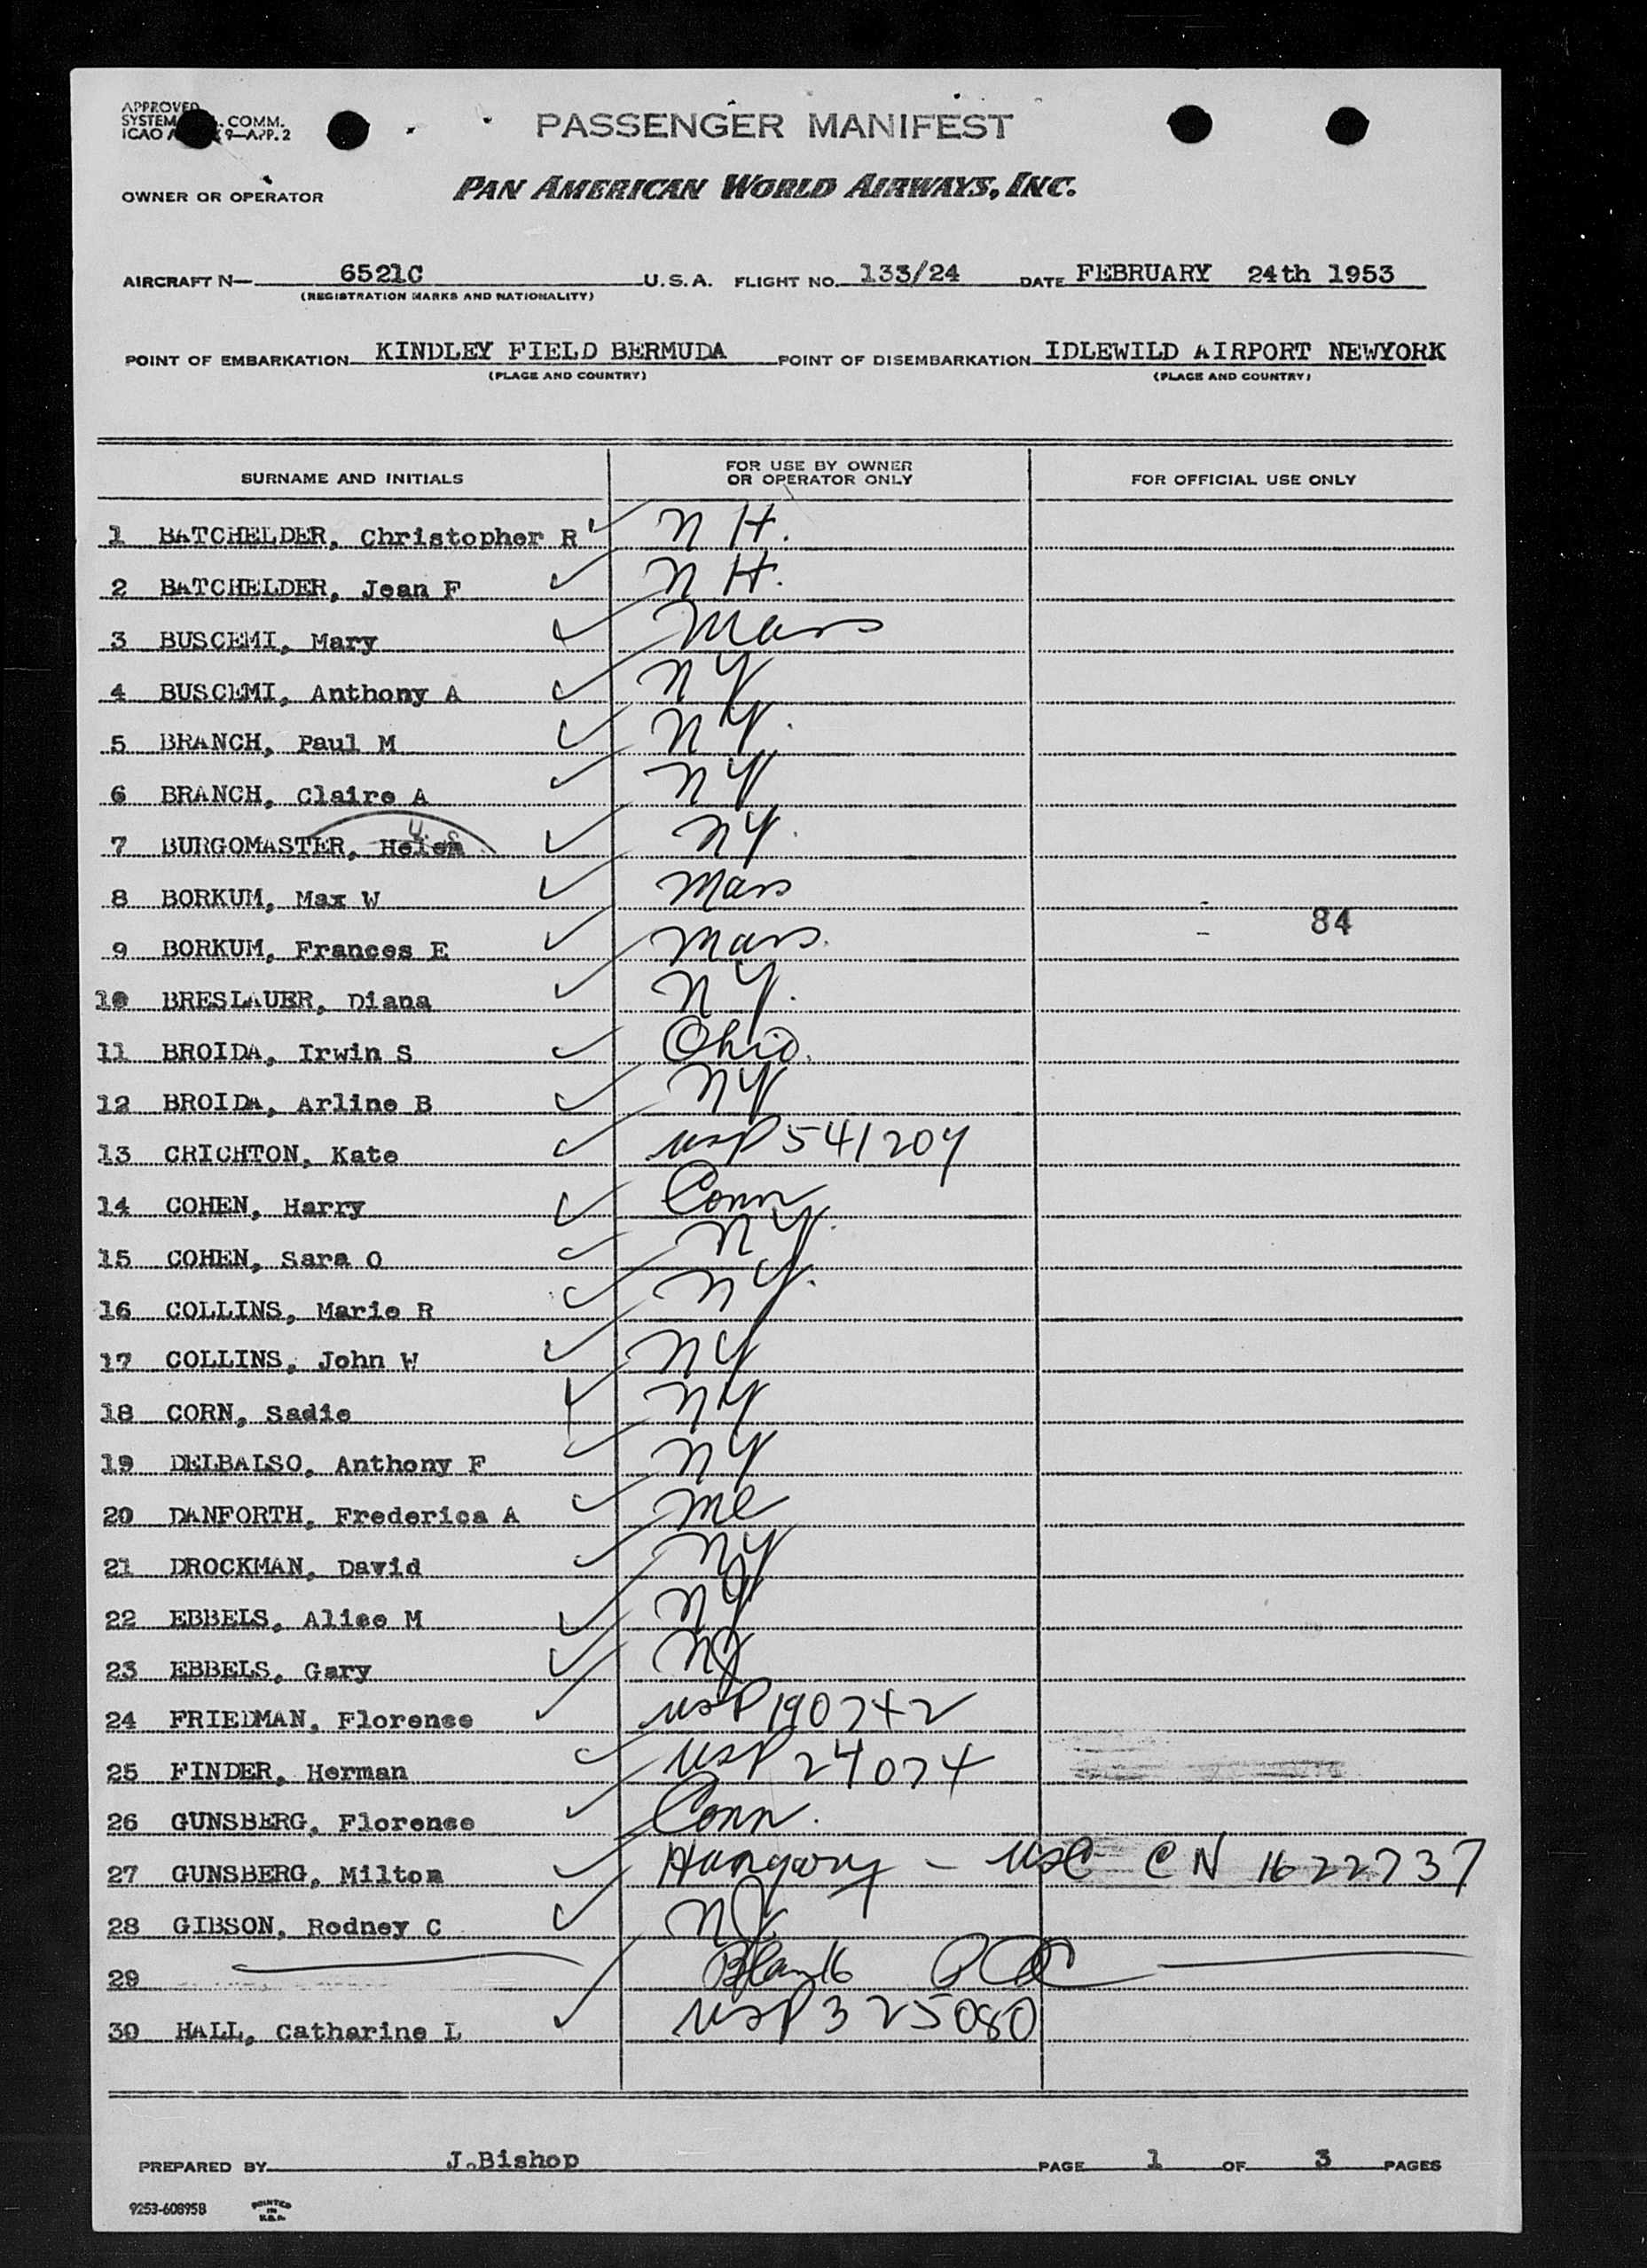 APPROVED
SYSTEM COMM.
ICAO 9—APP. 2
PASSENGER MANIFEST
OWNER OR OPERATOR PAN AMERICAN WORLD AIRWAYS, INC.
AIRCRAFT N— 6521C U.S.A. FLIGHT NO. 133/24 DATE FEBRUARY 24th 1953
(REGISTRATION MARKS AND NATIONALITY)
POINT OF EMBARKATION KINDLEY FIELD BERMUDA POINT OF DISEMBARKATION IDLEWILD AIRPORT NEWYORK
(PLACE AND COUNTRY) (PLACE AND COUNTRY)
SURNAME AND INITIALS FOR USE BY OWNER OR OPERATOR ONLY FOR OFFICIAL USE ONLY
1 BATCHELDER, Christopher R NH.
2 BATCHELDER, Jean F NH.
3 BUSCEMI, Mary Mass
4 BUSCEMI, Anthony A NY
5 BRANCH, Paul M NY.
6 BRANCH, Claire A NY
7 BURGOMASTER, Helen NY.
8 BORKUM, Max W Mass
84
9 BORKUM, Frances E Mass.
10 BRESLAUER, Diana NY.
11 BROIDA, Irwin S Ohio.
12 BROIDA, Arline B NY
13 CRICHTON, Kate USP 541204
14 COHEN, Harry Conn
15 COHEN, Sara O NY.
16 COLLINS, Marie R NY.
17 COLLINS, John W NY
18 CORN, Sadie NY
19 DELBALSO, Anthony F NY
20 DANFORTH, Frederica A Me
21 DROCKMAN, David NY
22 EBBELS, Alice M NJ
23 EBBELS, Gary NJ
24 FRIEDMAN, Florence USP 190742
25 FINDER, Herman USP 24074
26 GUNSBERG, Florence Conn.
27 GUNSBERG, Milton Hungary - USC CN 1622737
28 GIBSON, Rodney C NJ
29 Blank
30 HALL, Catharine L USP 325080
PREPARED BY J.Bishop PAGE 1 OF 3 PAGES
9253-608958 PRINTED IN U.S.A.